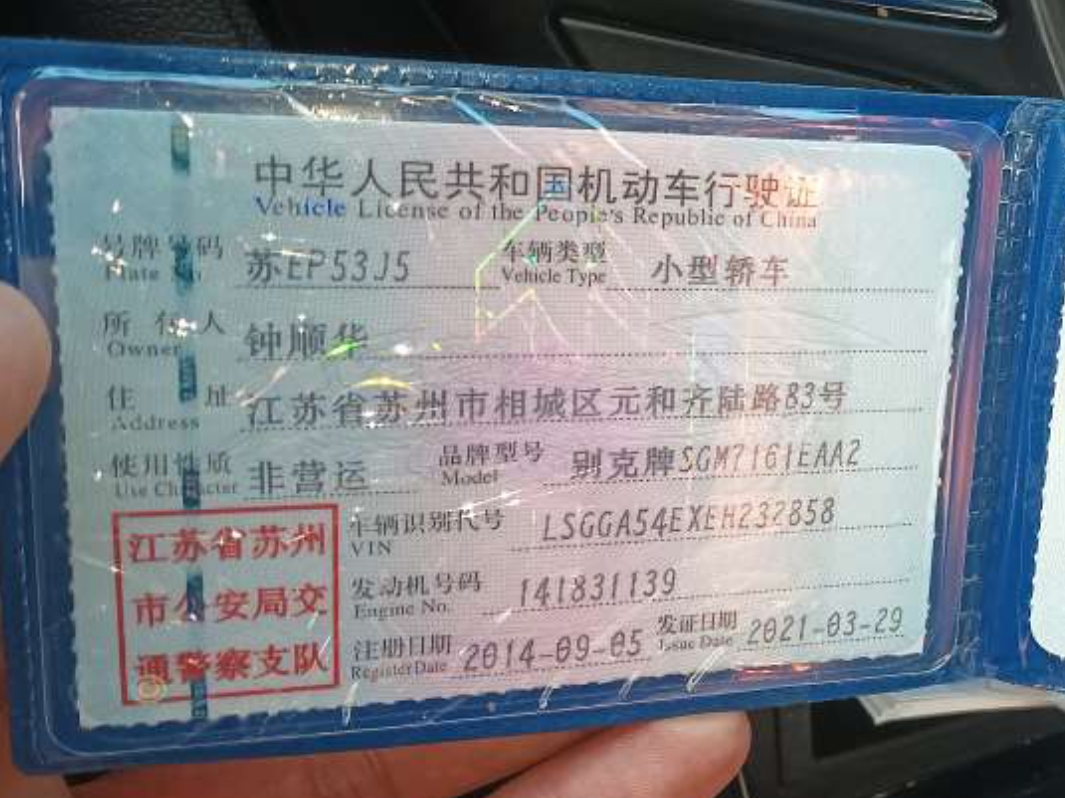 中华人民共和国机动车行驶证
Vehicle License of the People's Republic of China
号牌号码 苏EP53J5 车辆类型 小型轿车
Plate No. Vehicle Type
所有人 钟顺华
Owner
住址 江苏省苏州市相城区元和齐陆路83号
Address
使用性质 非营运 品牌型号 别克牌SGM7161EAA2
Use Character Model
车辆识别代号 LSGGA54EXEH232858
VIN
发动机号码 141831139
Engine No.
注册日期 2014-09-05 发证日期 2021-03-29
Register Date Issue Date
江苏省苏州
市公安局交
通警察支队